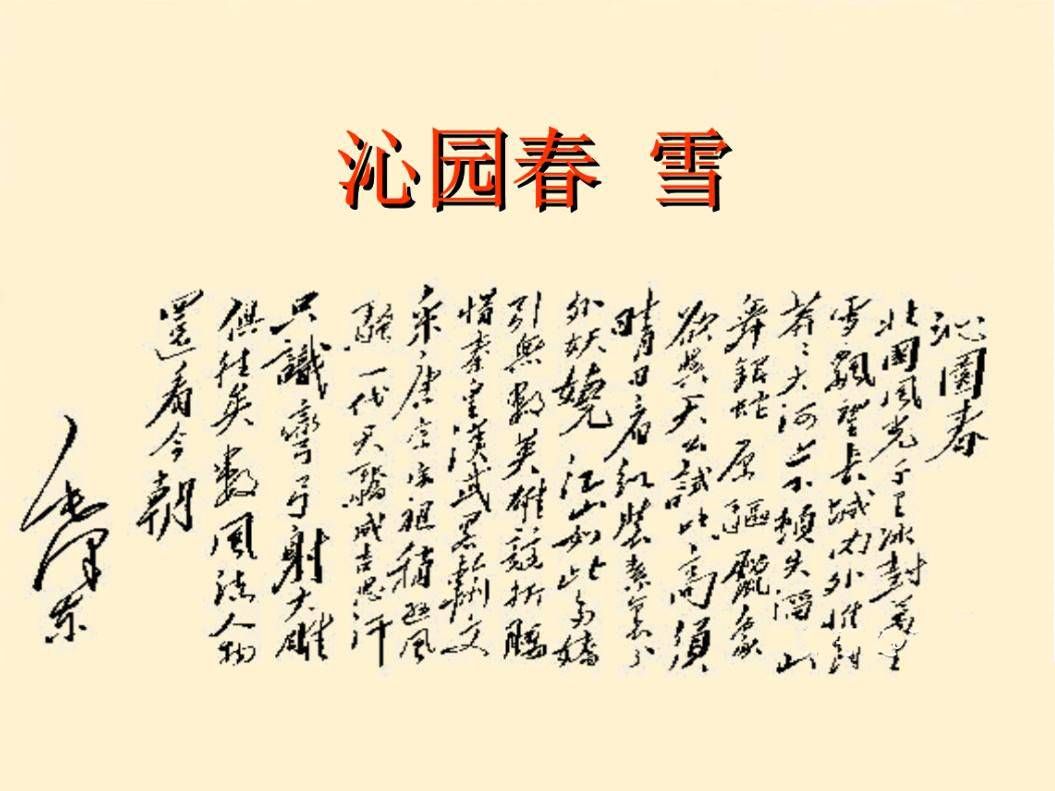 沁园春 雪
沁園春
北國風光千里冰封萬里
雪飄望長城内外惟餘
莽々大河上下頓失滔々山
舞銀蛇原驅臘象
欲與天公試比高須
晴日看紅裝素裹分
外妖嬈江山如此多嬌
引無數英雄競折腰
惜秦皇漢武略輸文
采唐宗宋祖稍遜風
騷一代天驕成吉思汗
只識彎弓射大雕
俱往矣數風流人物
還看今朝
毛澤東